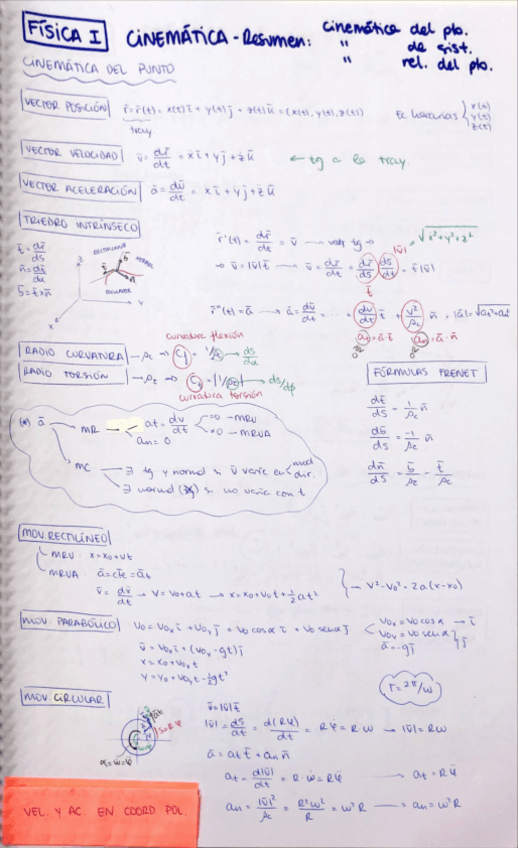 FÍSICA I CINEMÁTICA - Resumen: cinemática del pto.
" de sist.
" rel. del pto.
CINEMÁTICA DEL PUNTO
VECTOR POSICIÓN r̄ = r̄(t) = x(t)ī + y(t)j̄ + z(t)k̄ = (x(t), y(t), z(t)) Ec horarias { x(t) y(t) z(t)
tray.
VECTOR VELOCIDAD v̄ = dr̄/dt = ẋī + ẏj̄ + żk̄ ← tg a la tray.
VECTOR ACELERACIÓN ā = dv̄/dt = ẍī + ÿj̄ + z̈k̄
TRIEDRO INTRÍNSECO
t̄ = dr̄/ds
b̄ = t̄ x n̄
NORMAL
Z Y X
r̄'(t) = dr̄/dt = v̄ → vector tg → |v̄| = √x²+y²+z²
⇒ v̄ = |v̄| t̄ → v̄ = dr̄/dt = dr̄/ds ds/dt = t̄ |v̄|
t̄
r̄''(t) = ā → ā = dv̄/dt = ... = dv/dt t̄ + v²/ρc n̄, |ā| = √at²+an²
at = ā·t̄ an = ā·n̄
curvatura flexión
RADIO CURVATURA → ρc ⇒ Cf = 1/ρc → ds/dα
RADIO TORSIÓN → ρt ⇒ |1/ρt| → ds/dβ
curvatura torsión
FÓRMULAS FRENET
dt̄/ds = 1/ρc n̄
db̄/ds = -1/ρt n̄
dn̄/ds = b̄/ρt - t̄/ρc
(*) ā
MR → at = dv/dt =0 - MRU
≠0 - MRUA
an = 0
MC ∃ tg y normal si v̄ varía en mod dir.
∃ normal si no varía con t
MOV RECTILÍNEO
MRU: x = x0 + vt
MRUA: ā = cte = āt
v̄ = dx̄/dt → v = v0 + at → x = x0 + v0t + ½at² } → v² - v0² = 2a(x-x0)
MOV. PARABÓLICO v̄0 = v0x ī + v0y j̄ = v0 cosα ī + v0 senα j̄ v0x = v0 cosα → ī
v0y = v0 senα } j̄
ā = -gj̄
v̄ = v0x ī + (v0y - gt)j̄
x = x0 + v0x t
y = y0 + v0y t - ½gt²
MOV. CIRCULAR
T = 2π/ω
S = Rφ
α = ω̇ = φ̈
v̄ = |v̄| t̄
|v̄| = ds/dt = d(Rφ)/dt = Rφ̇ = Rω → |v̄| = Rω
ā = at t̄ + an n̄
at = d|v̄|/dt = R·ω̇ = Rφ̈ → at = Rφ̈
an = |v̄|²/ρc = R²ω²/R = ω²R → an = ω²R
VEL. Y AC. EN COORD POL.